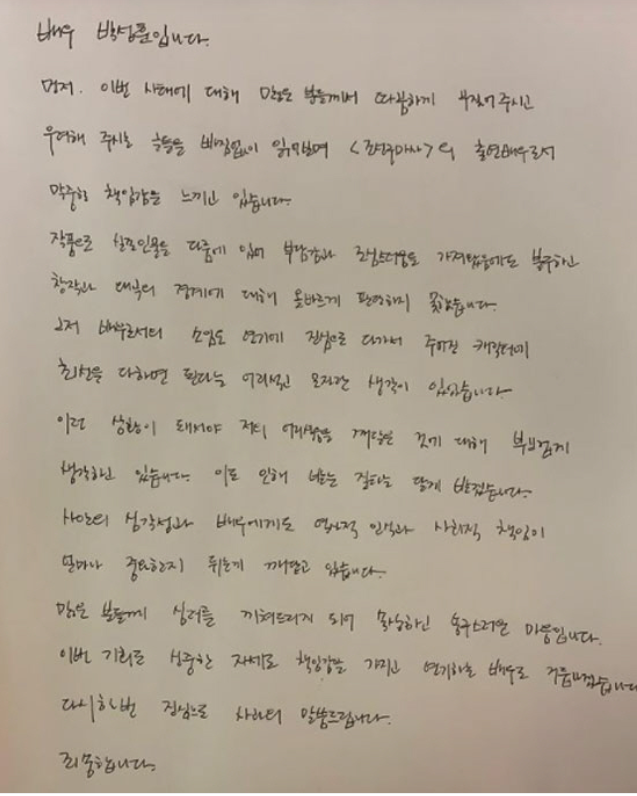 배우 박성훈입니다.
먼저, 이번 사태에 대해 많은 분들께서 따끔하게 꾸짖어 주시고
우려해 주시는 글들을 빠짐없이 읽어보며 <조선구마사>의 출연배우로서
막중한 책임감을 느끼고 있습니다.
작품으로 실존인물을 다룸에 있어 부담감과 조심스러움도 가져왔음에도 불구하고
창작과 왜곡의 경계에 대해 올바르게 판단하지 못했습니다.
그저 배우로서의 소임도 연기에 진심으로 다가서 주어진 캐릭터에
최선을 다하면 된다는 어리석고 모자란 생각이 있었습니다.
이런 상황이 돼서야 저의 어리석음을 깨달은 것에 대해 부끄럽게
생각하고 있습니다. 이로 인해 받는 질타는 달게 받겠습니다.
사안의 심각성과 배우에게도 역사적 인식과 사회적 책임이
얼마나 중요한지 뒤늦게 깨닫고 있습니다.
많은 분들께 심려를 끼쳐드리게 되어 황송하고 송구스러운 마음입니다.
이번 기회로 신중한 자세로 책임감을 가지고 연기하는 배우로 거듭나겠습니다
다시한번 진심으로 사과의 말씀드립니다.
죄송합니다.